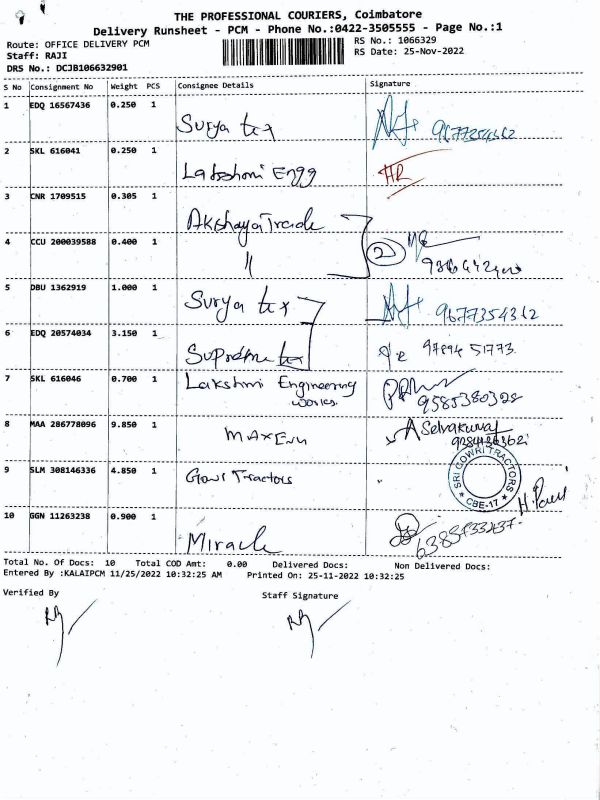 THE PROFESSIONAL COURIERS, Coimbatore
Delivery Runsheet - PCM - Phone No.:0422-3505555 - Page No.:1
Route: OFFICE DELIVERY PCM
RS No.: 1066329
Staff: RAJI
RS Date: 25-Nov-2022
DRS No.: DCJB106632901
S No Consignment No Weight PCS Consignee Details Signature
1 EDQ 16567436 0.250 1 Surya tex 9677354362
2 SKL 616041 0.250 1 Lakshmi Engg HR
3 CNR 1709515 0.305 1 Akshaya Trade
4 CCU 200039588 0.400 1 " 2
5 DBU 1362919 1.000 1 Surya tex 9677354362
6 EDQ 20574034 3.150 1 tex 97894 51773
7 SKL 616046 0.700 1 Lakshmi Engineering
works 9585380328
8 MAA 286778096 9.850 1 Selvakumar
9 SLM 308146336 4.850 1 Gowri Tractors
SRI GOWRI TRACTORS
CBE-17
10 GGN 11263238 0.900 1 Miracle
Total No. Of Docs: 10 Total COD Amt: 0.00 Delivered Docs: Non Delivered Docs:
Entered By :KALAIPCM 11/25/2022 10:32:25 AM Printed On: 25-11-2022 10:32:25
Verified By Staff Signature